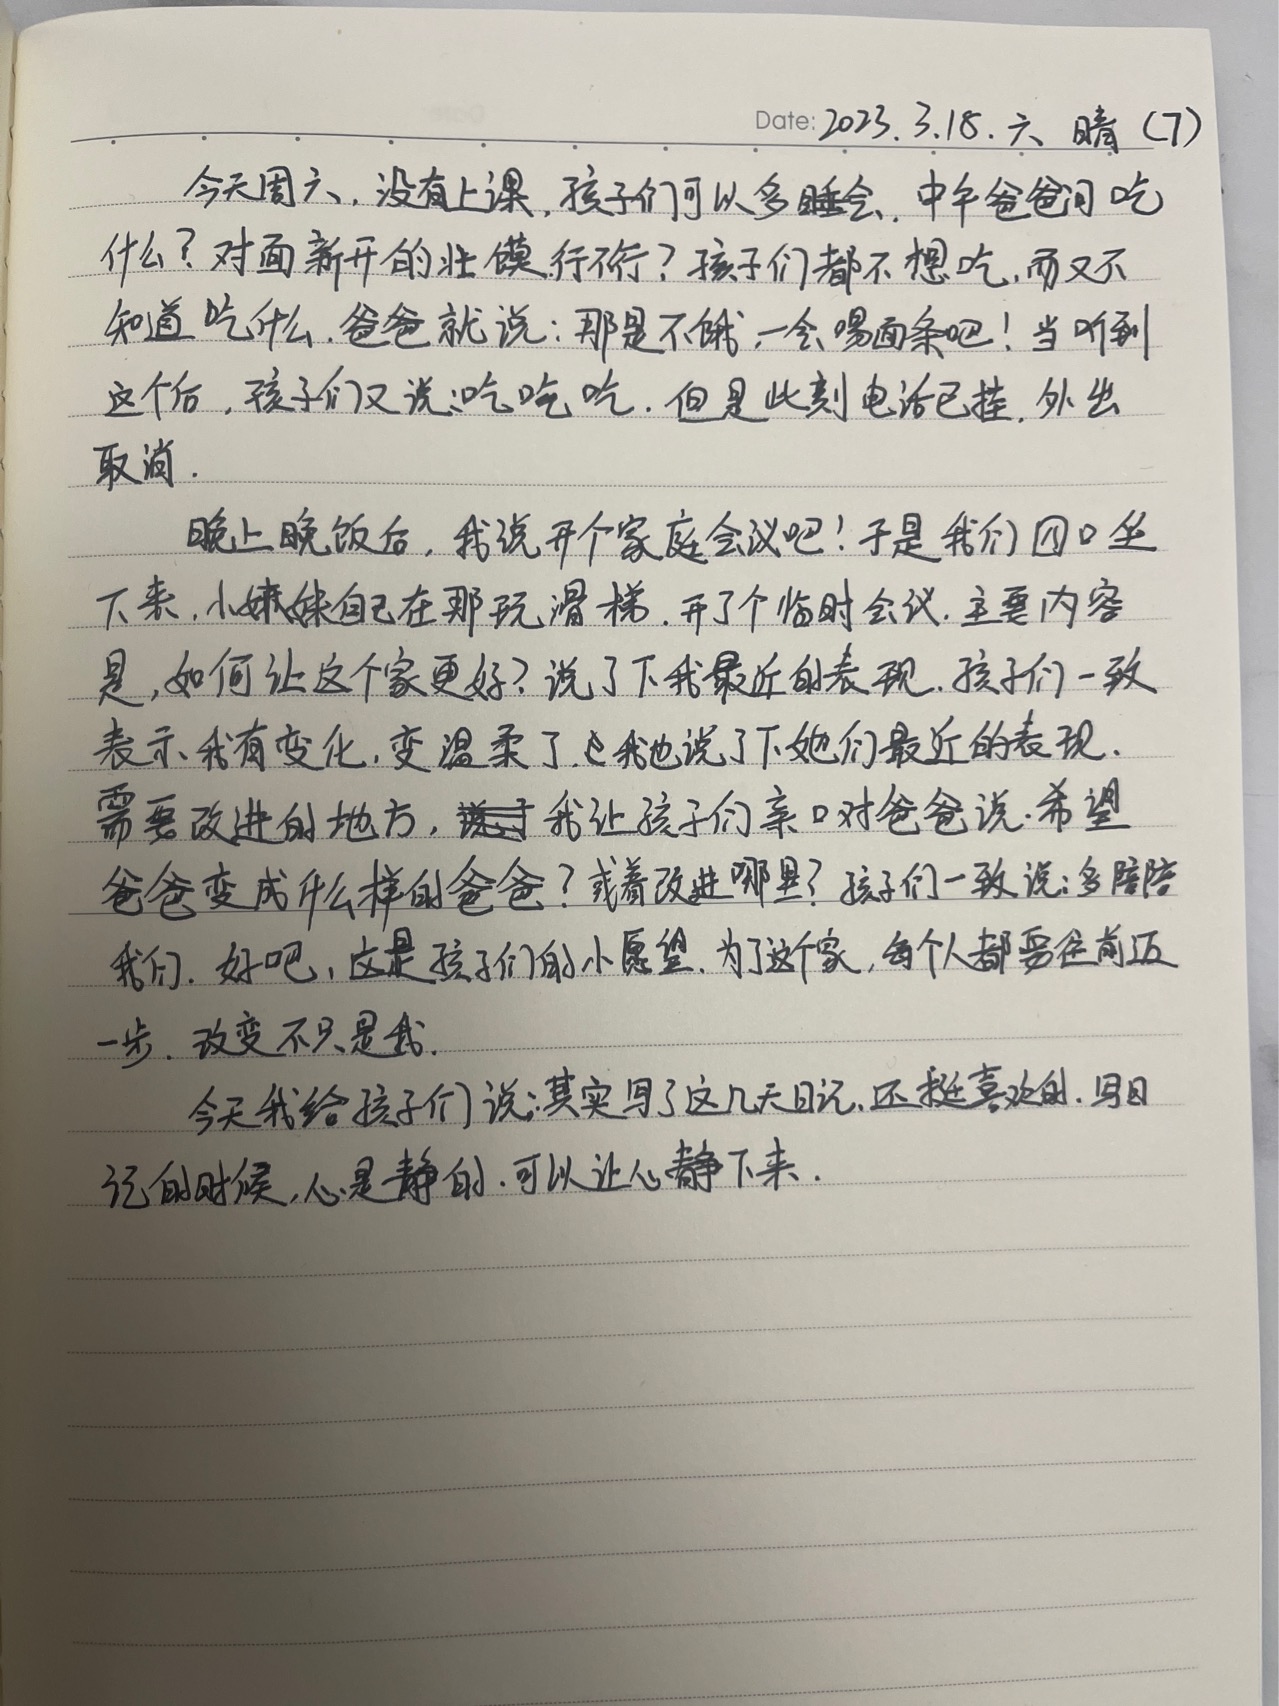 Date: 2023.3.18.六 晴(7)
今天周六,没有上课,孩子们可以多睡会.中午爸爸问吃
什么?对面新开的壮馍行不行?孩子们都不想吃,而又不
知道吃什么.爸爸就说:那是不饿,一会喝面条吧!当听到
这个后,孩子们又说:吃吃吃.但是此刻电话已挂,外出
取消.
晚上晚饭后,我说开个家庭会议吧!于是我们四口坐
下来,小妹妹自己在那玩滑梯.开了个临时会议.主要内容
是,如何让这个家更好?说了下我最近的表现.孩子们一致
表示我有变化,变温柔了.我也说了下她们最近的表现.
需要改进的地方,我让孩子们亲口对爸爸说.希望
爸爸变成什么样的爸爸?或着改进哪里?孩子们一致说:多陪陪
我们.好吧,这是孩子们的小愿望.为了这个家,每个人都要往前迈
一步.改变不只是我.
今天我给孩子们说:其实写了这几天日记,还挺喜欢的.写日
记的时候,心是静的.可以让心静下来.